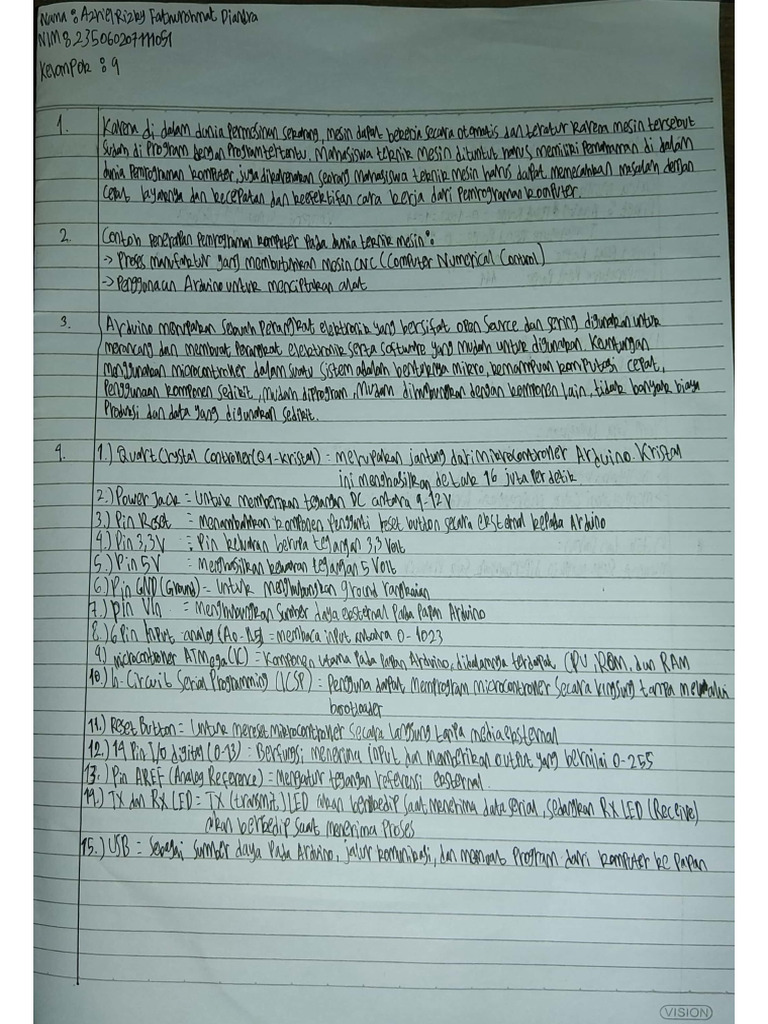 Nama : Azriel Rizky Fathurohmat Diandra
NIM : 235060207111051
Kelompok : 9
1. Karena di dalam dunia permesinan sekarang, mesin dapat bekerja secara otomatis dan teratur karena mesin tersebut
sudah di program dengan program tertentu. Mahasiswa teknik mesin dituntut harus memiliki pemahaman di dalam
dunia Pemrograman komputer, juga dikarenakan seorang mahasiswa teknik mesin harus dapat memecahkan masalah dengan
cepat layaknya dan kecepatan dan keefektifan cara kerja dari pemrograman komputer.
2. Contoh penerapan Pemrograman komputer pada dunia teknik mesin :
-> Proses manufaktur yang membutuhkan mesin CNC (Computer Numerical Control)
-> Penggunaan Arduino untuk menciptakan alat
3. Arduino merupakan sebuah perangkat elektronik yang bersifat open source dan sering digunakan untuk
merancang dan membuat perangkat elektronik serta software yang mudah untuk digunakan. Keuntungan
menggunakan microcontroller dalam suatu sistem adalah bentuknya mikro, kemampuan komputasi cepat,
Penggunaan komponen sedikit, mudah diprogram, mudah dihubungkan dengan komponen lain, tidak banyak biaya
Produksi dan data yang digunakan sedikit.
4. 1.) Quart Crystal Controller (Q1-kristal) = merupakan jantung dari mikrocontroller Arduino. Kristal
ini menghasilkan detak 16 juta per detik
2.) Power Jack = Untuk memberikan tegangan DC antara 9-12V
3.) Pin Reset = menambahkan komponen pengganti reset button secara eksternal kepada Arduino
4.) Pin 3,3V = Pin keluaran berupa tegangan 3,3 Volt
5.) Pin 5V = menghasilkan keluaran tegangan 5 Volt
6.) Pin GND (Ground) = untuk menghubungkan ground rangkaian
7.) Pin Vin = menghubungkan sumber daya eksternal pada papan Arduino
8.) 6 Pin Input analog (A0-A5) = membaca input antara 0-1023
9.) microcontroller ATMega (IC) = Komponen utama pada papan Arduino, didalamnya terdapat CPU, ROM, dan RAM
10.) In-Circuit Serial Programming (ICSP) = Pengguna dapat memprogram microcontroller secara langsung tanpa melalui
bootloader
11.) Reset Button = Untuk mereset mikrocontroller secara langsung tanpa media eksternal
12.) 14 Pin I/O digital (0-13) = Berfungsi menerima input dan memberikan output yang bernilai 0-255
13.) Pin AREF (Analog Reference) = mengatur tegangan referensi eksternal
14.) TX dan RX LED = TX (transmit) LED akan berkedip saat menerima data serial, sedangkan RX LED (Receive)
akan berkedip saat menerima proses
15.) USB = Sebagai sumber daya pada Arduino, jalur komunikasi, dan memuat program dari komputer ke papan
VISION